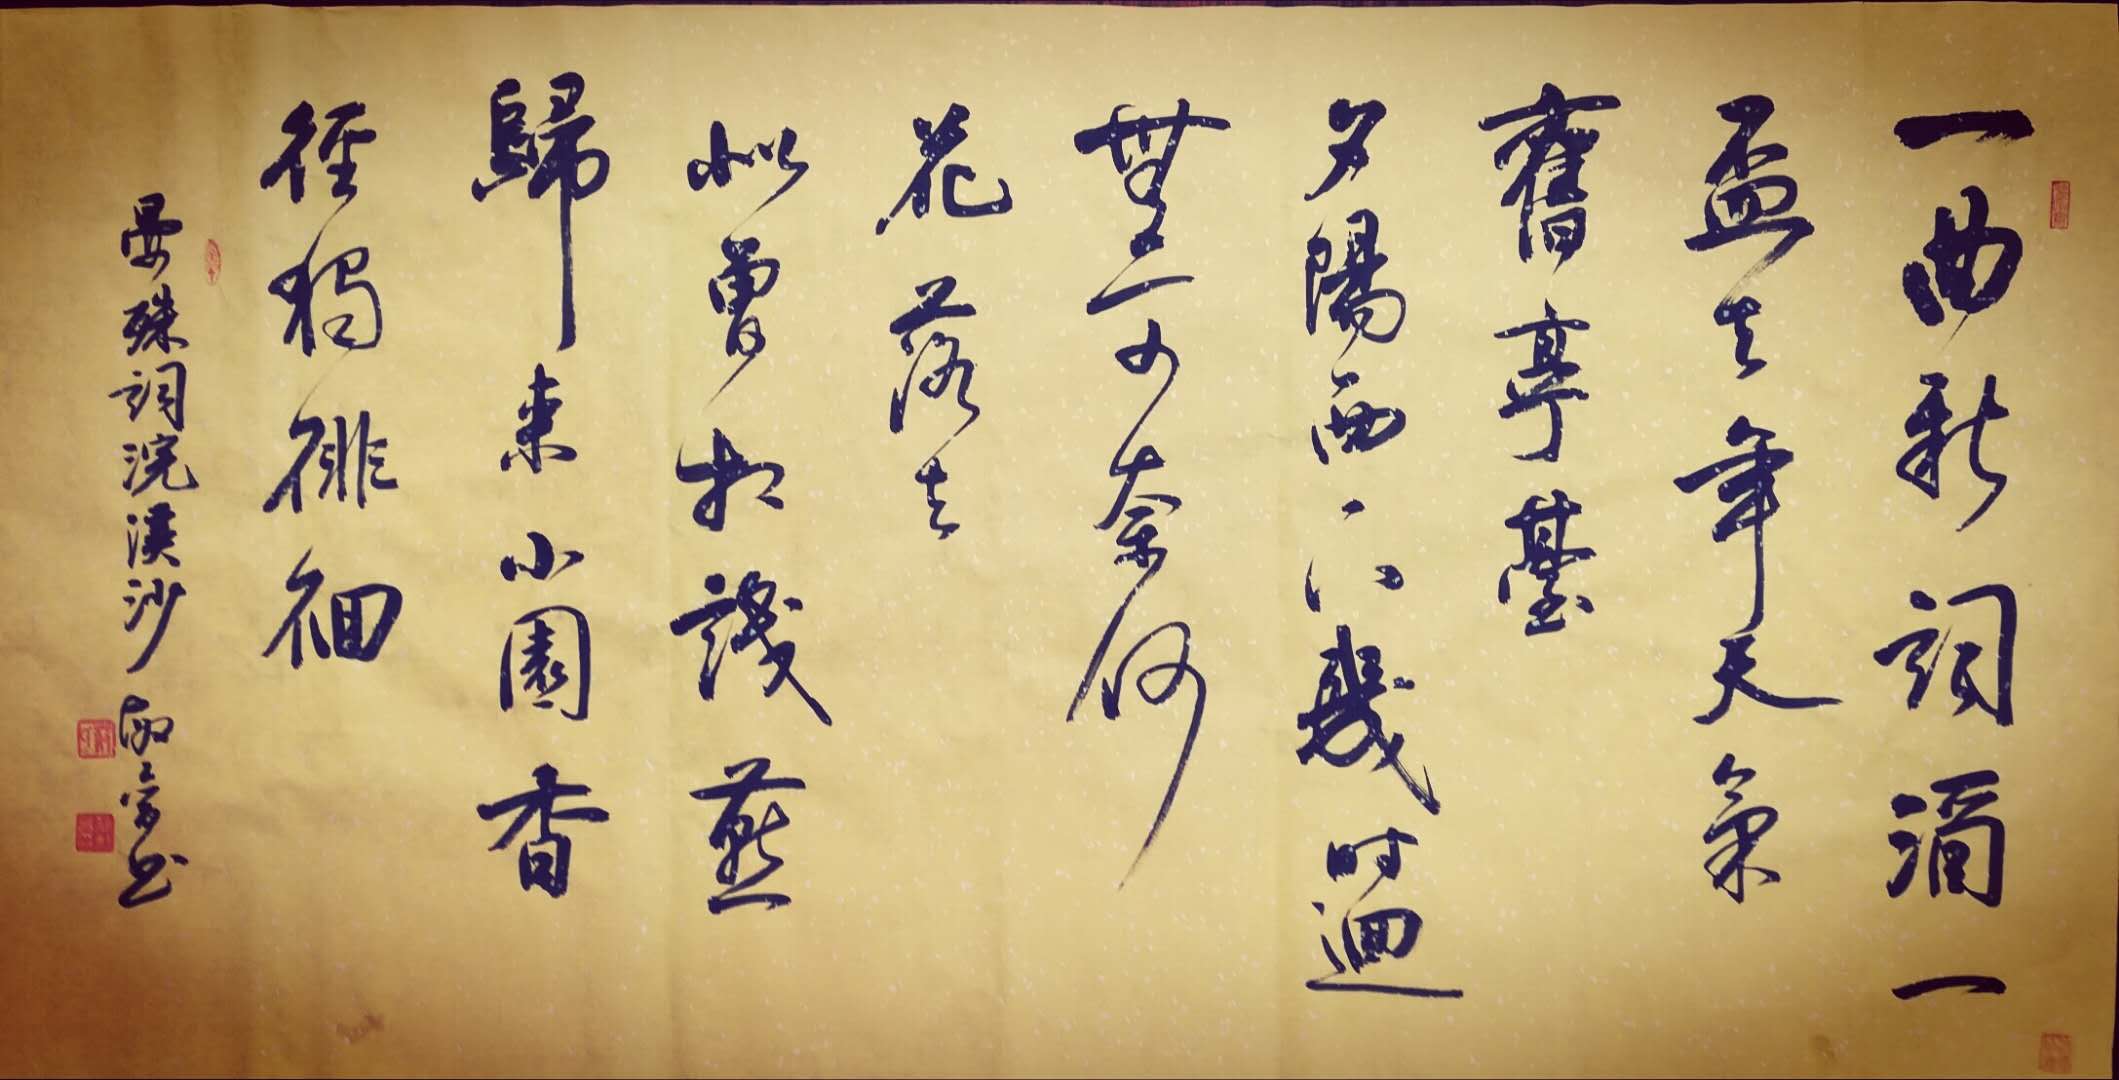 一曲新詞酒一
盃去年天氣
舊亭臺
夕陽西下幾时迴
無可奈何
花落去
似曾相識燕
歸來小園香
徑獨徘徊
晏殊詞浣溪沙 书